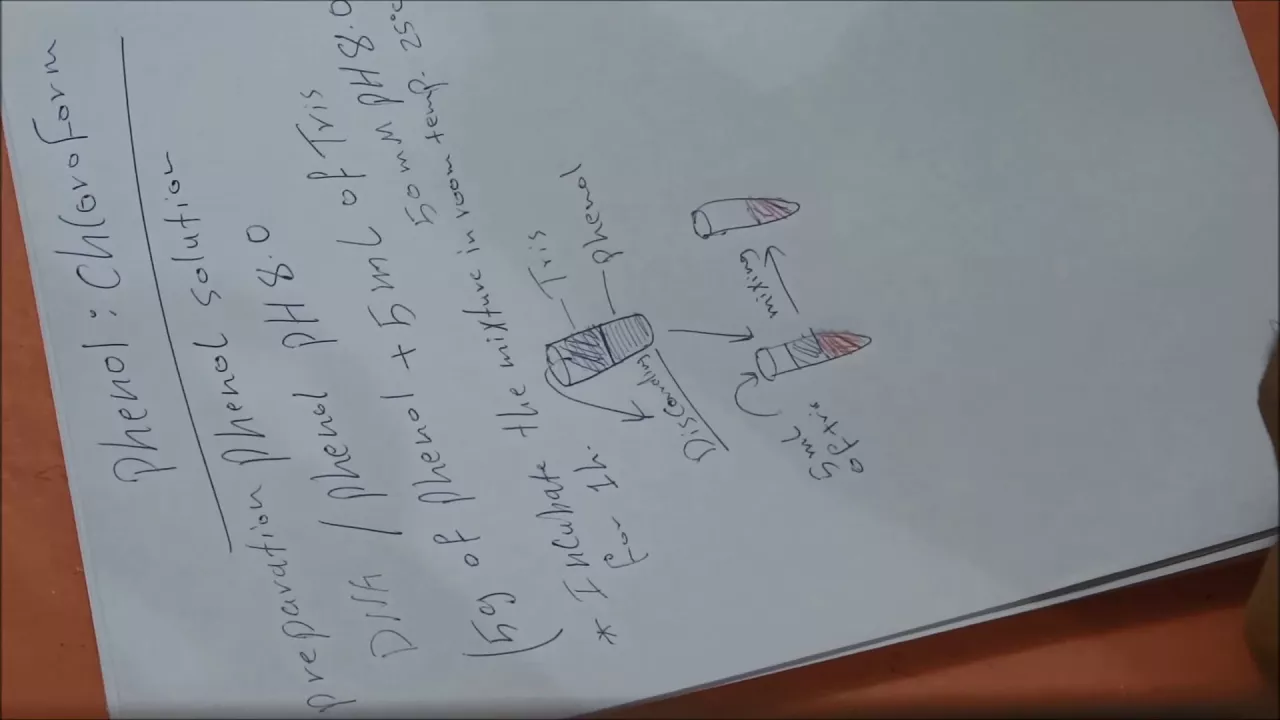 Phenol : Chloroform
preparation phenol solution
DNA / phenol pH 8.0
(5g of phenol + 5 mL of Tris
50 mM pH 8.0
* Incubate the mixture in room temp. 25°C
for 1h.
Tris
phenol
Discarding
5 mL
of tris
mixing